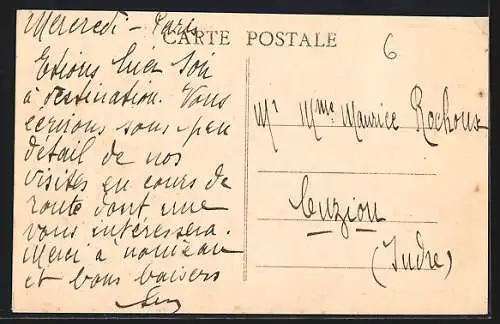 Mercredi - Paris
CARTE POSTALE
6
Etions hier soir
à destination. Vous
ecrirons sous peu
detail de nos
visites en cours de
route dont une
vous intéressera.
Merci à nouveau
et bons baisers
Mr Mme Maurice Rochoux
Cuzion
(Indre)